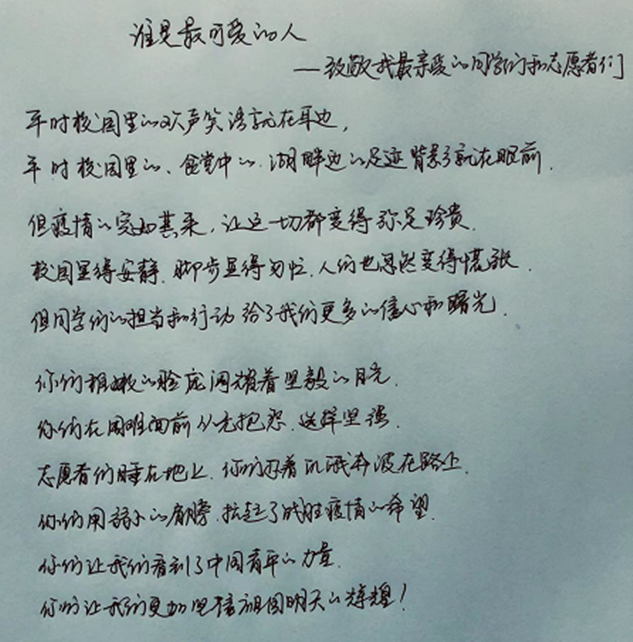 谁是最可爱的人
——致敬我最亲爱的同学们和志愿者们
平时校园里的欢声笑语就在耳边,
平时校园里的、食堂中的、湖畔边的足迹背影就在眼前.
但疫情的突如其来,让这一切都变得弥足珍贵.
校园显得安静.脚步显得匆忙.人们也忽然变得慌张.
但同学们的担当和行动给了我们更多的信心和曙光.
你们稚嫩的脸庞闪耀着坚毅的目光.
你们在困难面前从无抱怨.这样坚强.
志愿者们睡在地上.你们忍着饥饿奔波在路上.
你们用弱小的肩膀.扛起了战胜疫情的希望.
你们让我们看到了中国青年的力量.
你们让我们更加坚信祖国明天的辉煌!